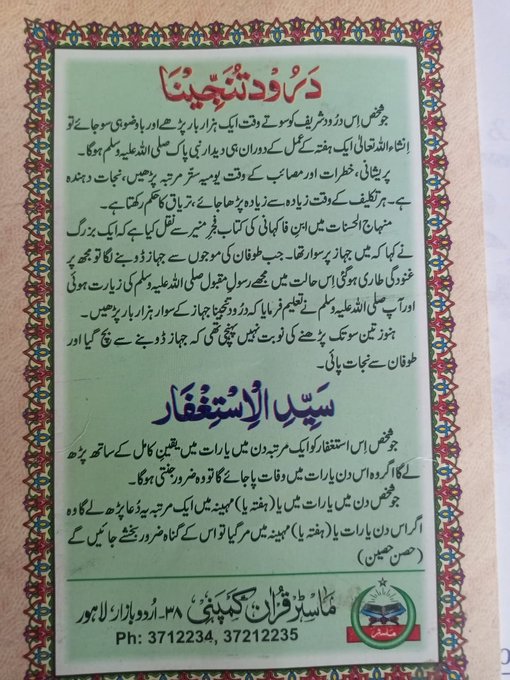 دَرُودِ تُنَجِّینَا
جو شخص اِس درُود شریف کو سوتے وقت ایک ہزار بار پڑھے اور با وضو ہی سو جائے تو
اِنشاء اللہ تعالیٰ ایک ہفتہ کے عمل کے دوران ہی دیدارِ نبی پاک صلی اللہ علیہ وسلم ہوگا۔
پریشانی، خطرات اور مصائب کے وقت یومیہ ستّر مرتبہ پڑھیں، نجات دہندہ
ہے۔ ہر تکلیف کے وقت زیادہ سے زیادہ پڑھا جائے، تریاق کا حکم رکھتا ہے۔
منہاج الحسنات میں ابنِ فاکہانی کی کتاب فجرِ منیر سے نقل کیا ہے کہ ایک بزرگ
نے کہا کہ میں جہاز پر سوار تھا۔ جب طوفان کی موجوں سے جہاز ڈوبنے لگا تو مجھ پر
غنودگی طاری ہوگئی اِس حالت میں مجھے رسولِ مقبول صلی اللہ علیہ وسلم کی زیارت ہوئی
اور آپ صلی اللہ علیہ وسلم نے تعلیم فرمایا کہ درُود تنجینا جہاز کے سوار ہزار بار پڑھیں۔
ہنوز تین سو تک پڑھنے کی نوبت نہیں پہنچی تھی کہ جہاز ڈوبنے سے بچ گیا اور
طوفان سے نجات پائی۔
سَیِّدِ الْاِسْتِغْفَار
جو شخص اِس استغفار کو ایک مرتبہ دن میں یا رات میں یقینِ کامل کے ساتھ پڑھ
لے گا اگر وہ اس دن یا رات میں وفات پا جائے گا تو وہ ضرور جنتی ہوگا۔
جو شخص دن میں یا رات میں یا (ہفتہ یا) مہینہ میں ایک مرتبہ یہ دُعا پڑھ لے گا وہ
اگر اس دن یا رات یا (ہفتہ یا) مہینہ میں مر گیا تو اس کے گناہ ضرور بخشے جائیں گے
(حصن حصین)
ماسٹر قرآن کمپنی ۳۸- اُردو بازار، لاہور
Ph: 3712234, 37212235